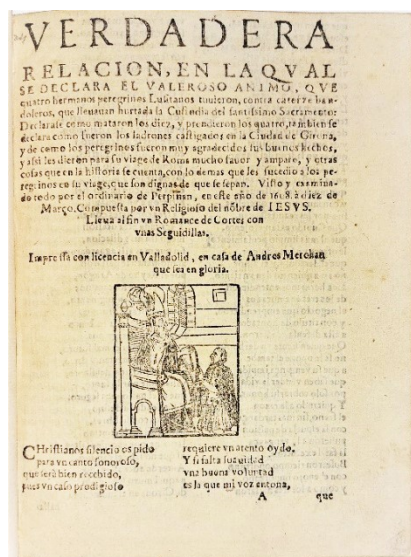 VERDADERA
RELACION, EN LA QVAL
SE DECLARA EL VALEROSO ANIMO, QVE
quatro hermanos peregrinos Lusitanos tuuieron, contra catorze ba n-
doleros, que lleuauan hurtada la Custodia del santissimo Sacramento:
Declarase como mataron los diez, y prendieron los quatro, tambien se
declara como fueron los ladrones castigados en la Ciudad de Girona,
y de como los peregrinos fueron muy agradecidos sus buenos hechos,
y assi les dieron para su viage de Roma mucho fauor y amparo, y otras
cosas que en la historia se cuenta, con lo demas que les sucedio a los pe-
regrinos en su viage, que son dignas de que se sepan. Visto y examina-
do todo por el ordinario de Perpiñan, en este año de 1608. à diez de
Março. Compuesta por vn Religioso del nõbre de IESVS.
Lleua al fin vn Romance de Cortes con
vnas Seguidillas.
Impressa con licencia en Valladolid, en casa de Andres Merchan
que sea en gloria.
CHristianos silencio os pido
para vn canto sonoroso,
que será bien recebido,
pues vn caso prodigioso
requiere vn atento oydo.
Y si falta suauidad
vna buena voluntad
es la que mi voz entona,
A que